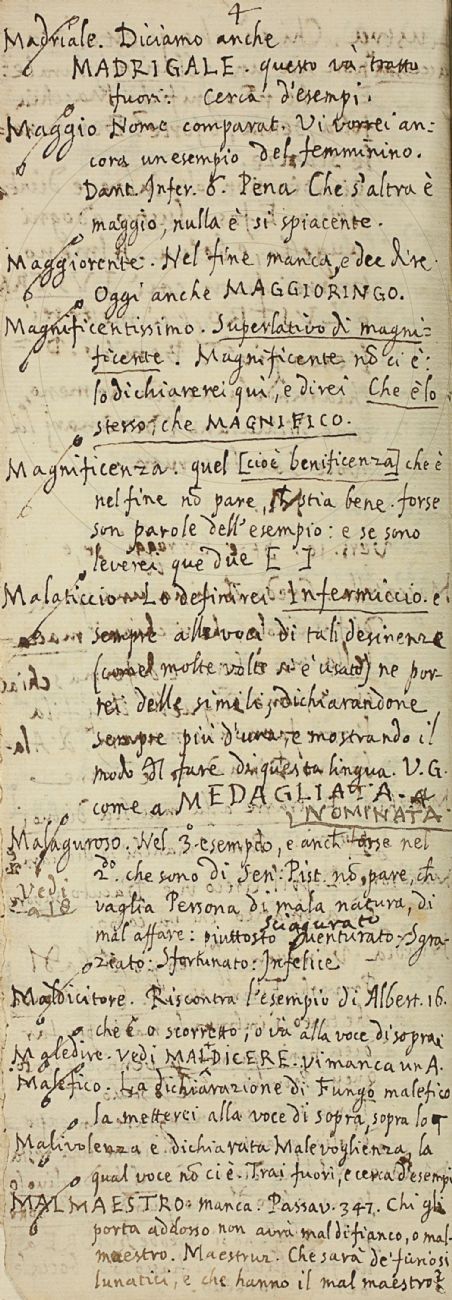 4
Madriale. Diciamo anche
MADRIGALE. questo và tratto
fuori. Cerca d'esempi.
Maggio Nome comparat. Vi vorrei an=
cora un esempio del femminino.
Dant. Infer. 6. Pena Che s'altra è
maggio, nulla è si spiacente.
Maggiorente. Nel fine manca, e dee dire
Oggi anche MAGGIORINGO.
Magnificentissimo. Superlativo di magni=
ficente. Magnificente nō ci è:
lo dichiarerei quì, e direi Che è lo
stesso, che MAGNIFICO.
Magnificenza. quel [cioè benificenza] che è
nel fine nō pare, stia bene. forse
son parole dell'esempio: e se sono
leverei que due E I
Malaticcio Lo definirei Infermiccio. e
sempre alle voci di tali desinenze
(come molte volte s'è usato) ne por-
rei delle simili, dichiarandone
sempre più d'una, e mostrando il
modo di fare di questa lingua. V.G.
come a MEDAGLIATA.
NOMINATA
Malaguroso. Nel 3.º esempio, e anch forse nel
2.do che sono di Sen. Pist. nō pare, ch
Vedi
a 18
vaglia Persona di mala natura, di
mal affare: piuttosto sciagurato
Sventurato. Sgra-
ziato: Sfortunato: Infelice
Maldicitore. Riscontra l'esempio di Albert. 16.
che è o scorretto, o và alla voce di sopra
Maledire. Vedi MALDICERE. vi manca un A.
Malefico. La dichiarazione di Fungo malefico
la metterei alla voce di sopra, sopra lo
Malivolenza è dichiarata Malevoglienza, la
qual voce nō ci è. Trai fuori, e cerca d'esempi
MALMAESTRO manca. Passav. 347. Chi gli
porta addosso non avrà mal di fianco, o mal-
maestro. Maestruz. Che sarà de' furiosi
lunatici, e che hanno il mal maestro?